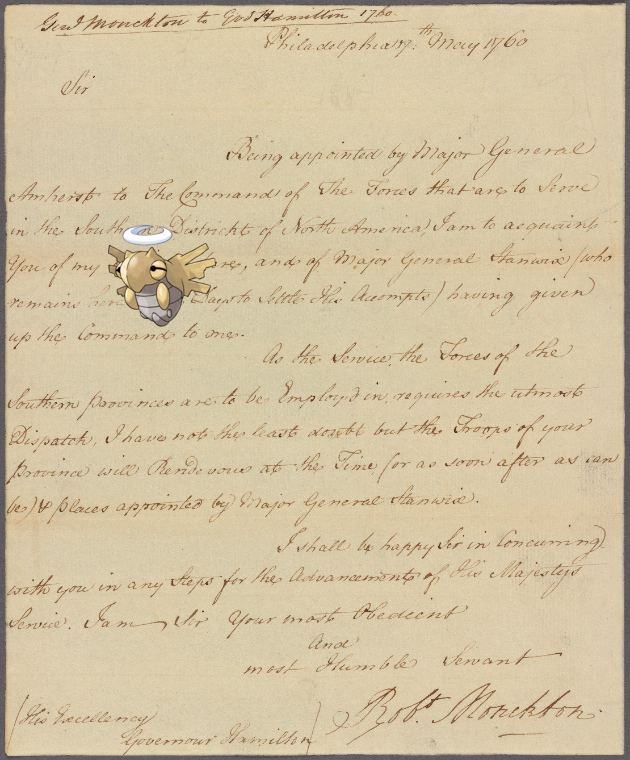 Genl Monckton to Govr Hamilton 1760.
Philadelphia 17.th May 1760
Sir
Being appointed by Major General
Amherst to The Command of The Forces that are to Serve
in the South Districkt of North America, I am to acquaint
You of my and of Major General Stanwix (who
remains Days to Settle His Accompts) having given
up the Command to me.
As the Service, the Forces of the
Southern Provinces are to be Employ'd in, requires the utmost
Dispatch, I have not the least doubt but the Troops of your
Province will Rendevous at the Time (or as soon after as can
be) & places appointed by Major General Stanwix.
I shall be happy Sir in Concurring
with you in any Steps for the Advancement of His Majesty's
Service. I am Sir Your most Obedient
And
most Humble Servant
Robt Monckton.
His Excellency
Governour Hamilton